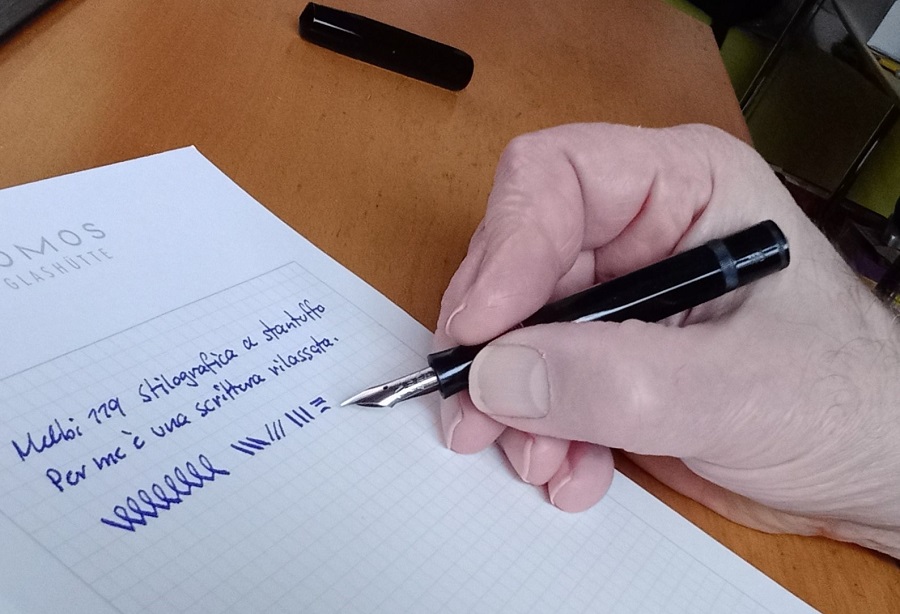 OMOS
GLASHÜTTE
Melbi 119 stilografica a stantuffo
Per me è una scrittura rilassata.